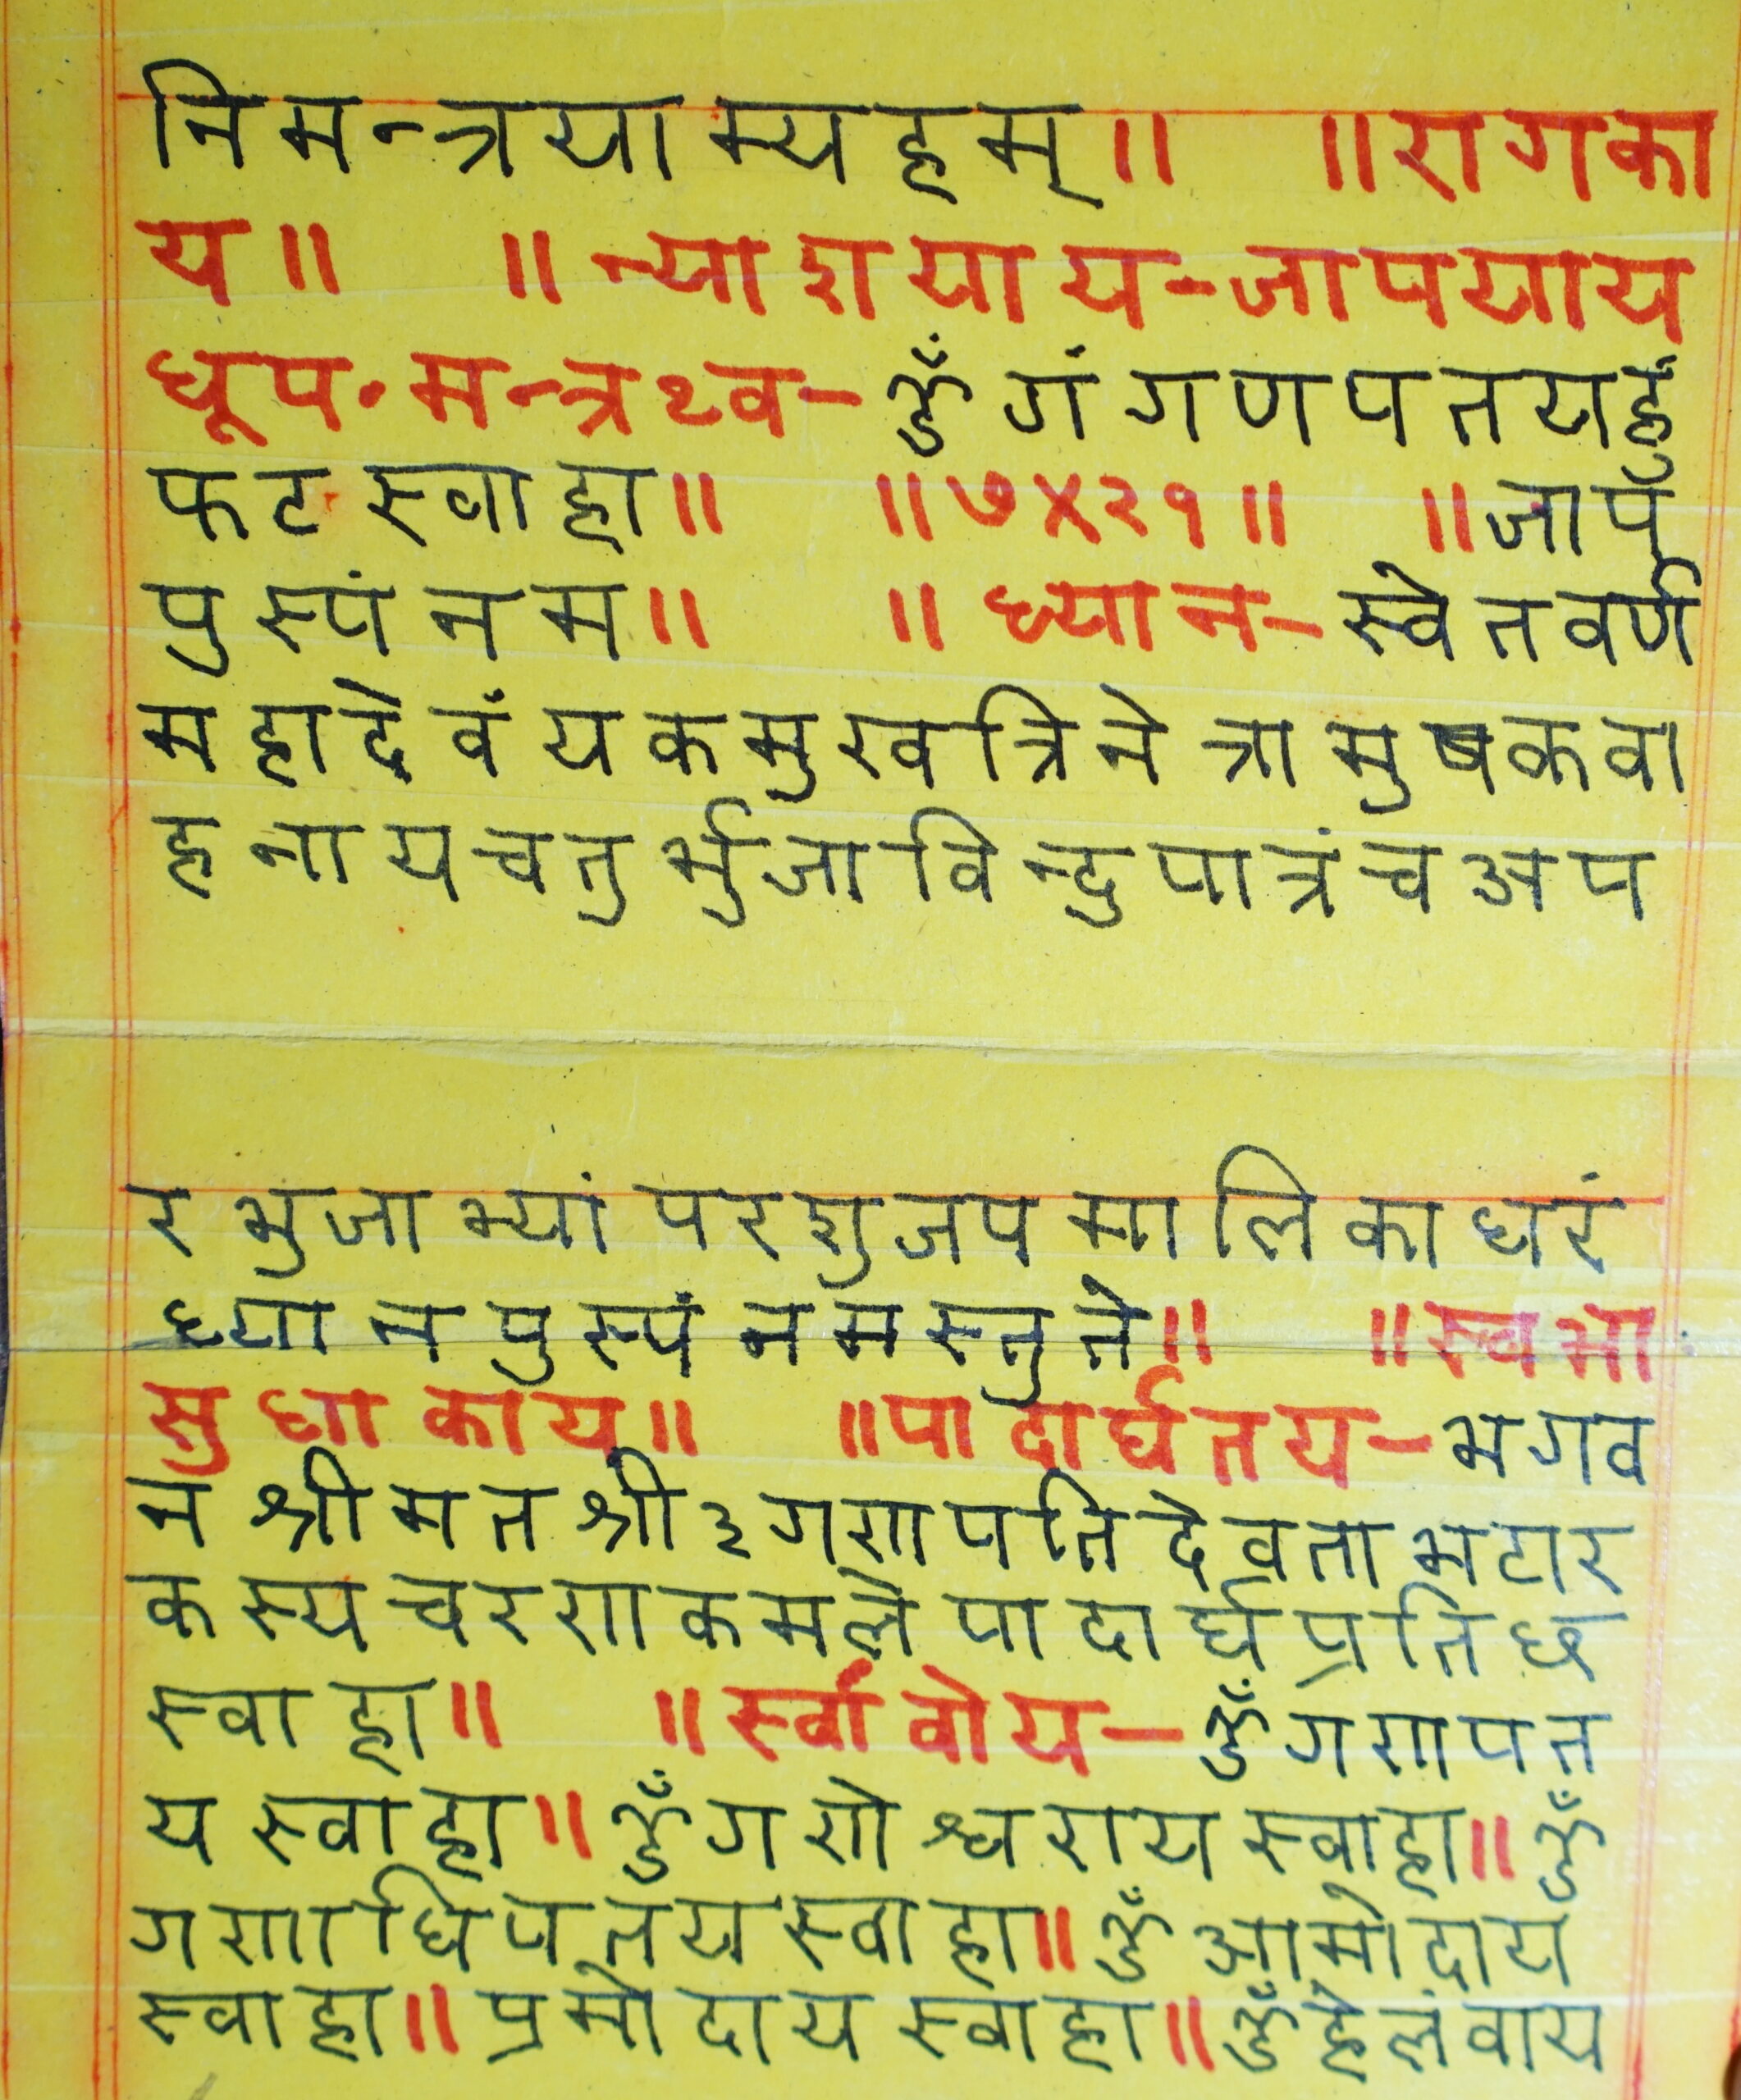 निमन्त्रयाम्यहम्॥ ॥रागका
य॥ ॥न्याशयाय-जापयाय
धूप·मन्त्रथ्व-ॐ गं गणपतयहुँ
फट स्वाहा॥ ॥७×२१॥ ॥जापँ
पुस्पं नम॥ ॥ध्यान-स्वेतवर्ण
महादेवं यकमुखत्रिनेत्रामुषकवा
हनायचतुर्भुजाविन्दुपात्रंचअप
रभुजाभ्यां परशुजपमालिकाधरं
ध्यानपुस्पं नमस्तुते॥ ॥स्वभा
सुधाकाय॥ ॥पादार्घतय-भगव
न श्रीमत श्री३गणपतिदेवताभटार
कस्यचरणकमले पादार्घप्रतिछ
स्वाहा॥ ॥र्स्वांवोय-ॐगणपत
य स्वाहा॥ ॐगणेश्वराय स्वाहा॥ ॐ
गणाधिपतय स्वाहा॥ ॐ आमोदाय
स्वाहा॥ प्रमोदाय स्वाहा॥ ॐहेलंवाय